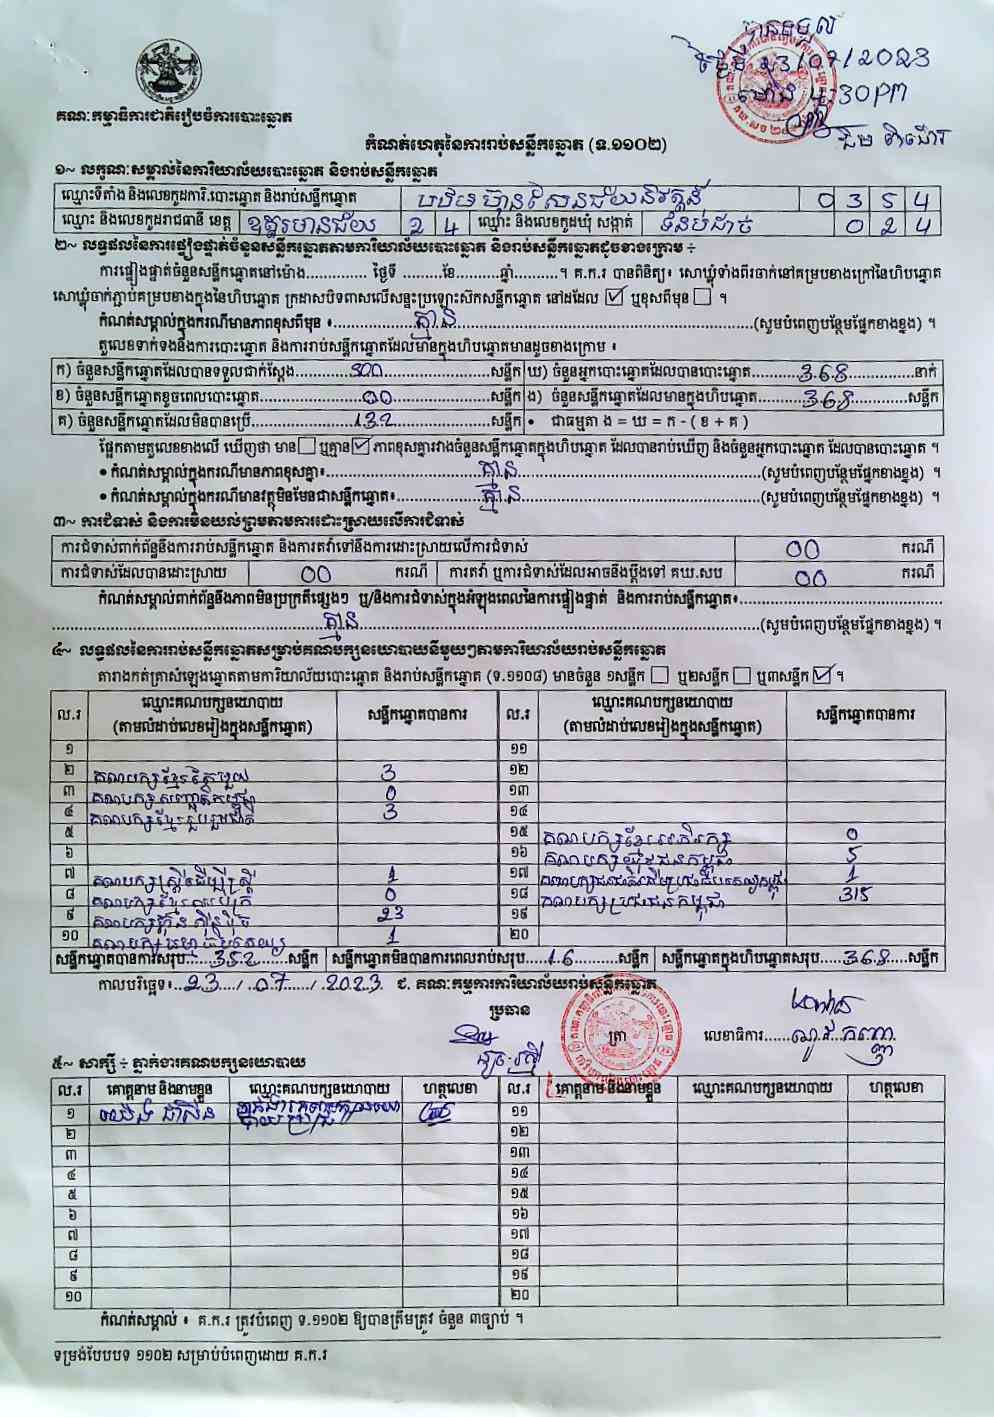 បានទទួល
ថ្ងៃទី 23/07/2023
ម៉ោង 4:30pm
គណៈកម្មាធិការជាតិរៀបចំការបោះឆ្នោត
កំណត់ហេតុនៃការរាប់សន្លឹកឆ្នោត (ទ.១១០២)
១~ លក្ខណៈសម្គាល់នៃការិយាល័យបោះឆ្នោត និងរាប់សន្លឹកឆ្នោត
ឈ្មោះទីតាំង និងលេខកូដការិ.បោះឆ្នោត និងរាប់សន្លឹកឆ្នោត 0 3 5 4
ឈ្មោះ និងលេខកូដរាជធានី ខេត្ត ឧត្តរមានជ័យ 2 4 ឈ្មោះ និងលេខកូដឃុំ សង្កាត់ ទំនប់ដាច់ 0 2 4
២~ លទ្ធផលនៃការផ្ទៀងផ្ទាត់ចំនួនសន្លឹកឆ្នោតតាមការិយាល័យបោះឆ្នោត និងរាប់សន្លឹកឆ្នោតដូចខាងក្រោម ៖
ការផ្ទៀងផ្ទាត់ចំនួនសន្លឹកឆ្នោតនៅម៉ោង............. ថ្ងៃទី ........ខែ.........ឆ្នាំ..........។ គ.ក.រ បានពិនិត្យ៖ សោឃ្លុំទាំងពីរចាក់នៅគម្របខាងក្រៅនៃហិបឆ្នោត
សោឃ្លុំចាក់ភ្ជាប់គម្របខាងក្នុងនៃហិបឆ្នោត ក្រដាសបិទពាសលើសន្ទះប្រឡោះស៊កសន្លឹកឆ្នោត នៅដដែល ☑ ឬខុសពីមុន ☐ ។
កំណត់សម្គាល់ក្នុងករណីមានភាពខុសពីមុន ៖ គ្មាន (សូមបំពេញបន្ថែមផ្នែកខាងខ្នង) ។
តួលេខទាក់ទងនឹងការបោះឆ្នោត និងការរាប់សន្លឹកឆ្នោតដែលមានក្នុងហិបឆ្នោតមានដូចខាងក្រោម ៖
ក) ចំនួនសន្លឹកឆ្នោតដែលបានទទួលជាក់ស្តែង 500 សន្លឹក ឃ) ចំនួនអ្នកបោះឆ្នោតដែលបានបោះឆ្នោត 368 នាក់
ខ) ចំនួនសន្លឹកឆ្នោតខូចពេលបោះឆ្នោត 00 សន្លឹក ង) ចំនួនសន្លឹកឆ្នោតដែលមានក្នុងហិបឆ្នោត 368 សន្លឹក
គ) ចំនួនសន្លឹកឆ្នោតដែលមិនបានប្រើ 132 សន្លឹក • ជាធម្មតា ង = ឃ = ក - ( ខ + គ )
ផ្អែកតាមតួលេខខាងលើ ឃើញថា មាន ☐ ឬគ្មាន ☑ ភាពខុសគ្នារវាងចំនួនសន្លឹកឆ្នោតក្នុងហិបឆ្នោត ដែលបានរាប់ឃើញ និងចំនួនអ្នកបោះឆ្នោត ដែលបានបោះឆ្នោត ។
• កំណត់សម្គាល់ក្នុងករណីមានភាពខុសគ្នា៖ គ្មាន (សូមបំពេញបន្ថែមផ្នែកខាងខ្នង) ។
• កំណត់សម្គាល់ក្នុងករណីមានវត្ថុមិនមែនជាសន្លឹកឆ្នោត៖ គ្មាន (សូមបំពេញបន្ថែមផ្នែកខាងខ្នង) ។
៣~ ការជំទាស់ និងការមិនយល់ព្រមតាមការដោះស្រាយលើការជំទាស់
ការជំទាស់ពាក់ព័ន្ធនឹងការរាប់សន្លឹកឆ្នោត និងការតវ៉ាទៅនឹងការដោះស្រាយលើការជំទាស់ 00 ករណី
ការជំទាស់ដែលបានដោះស្រាយ 00 ករណី ការតវ៉ា ឬការជំទាស់ដែលអាចនឹងប្តឹងទៅ គឃ.សប 00 ករណី
កំណត់សម្គាល់ពាក់ព័ន្ធនឹងភាពមិនប្រក្រតីផ្សេងៗ ឬ/និងការជំទាស់ក្នុងអំឡុងពេលនៃការផ្ទៀងផ្ទាត់ និងការរាប់សន្លឹកឆ្នោត៖
គ្មាន (សូមបំពេញបន្ថែមផ្នែកខាងខ្នង) ។
៤~ លទ្ធផលនៃការរាប់សន្លឹកឆ្នោតសម្រាប់គណបក្សនយោបាយនីមួយៗតាមការិយាល័យរាប់សន្លឹកឆ្នោត
តារាងកត់ត្រាសំឡេងឆ្នោតតាមការិយាល័យបោះឆ្នោត និងរាប់សន្លឹកឆ្នោត (ទ.១១០៨) មានចំនួន ១សន្លឹក ☐ ឬ២សន្លឹក ☐ ឬ៣សន្លឹក ☑ ។
ល.រ ឈ្មោះគណបក្សនយោបាយ (តាមលំដាប់លេខរៀងក្នុងសន្លឹកឆ្នោត) សន្លឹកឆ្នោតបានការ ល.រ ឈ្មោះគណបក្សនយោបាយ (តាមលំដាប់លេខរៀងក្នុងសន្លឹកឆ្នោត) សន្លឹកឆ្នោតបានការ
១ ១១
២ គណបក្សខ្មែរតែមួយ 3 ១២
៣ 0 ១៣
៤ គណបក្សខ្មែររួបរួមជាតិ 3 ១៤
៥ ១៥ គណបក្សខ្មែរអភិរក្ស 0
៦ ១៦ គណបក្សយុវជនកម្ពុជា 5
៧ គណបក្សស្ត្រីដើម្បីស្ត្រី 1 ១៧ 1
៨ 0 ១៨ គណបក្សប្រជាជនកម្ពុជា 315
៩ គណបក្សហ្វ៊ុនស៊ិនប៉ិច 23 ១៩
១០ គណបក្សធម្មាធិបតេយ្យ 1 ២០
សន្លឹកឆ្នោតបានការសរុប 352 សន្លឹក សន្លឹកឆ្នោតមិនបានការពេលរាប់សរុប 16 សន្លឹក សន្លឹកឆ្នោតក្នុងហិបឆ្នោតសរុប 368 សន្លឹក
កាលបរិច្ឆេទ៖ 23 / 07 / 2023 ជ. គណៈកម្មការការិយាល័យរាប់សន្លឹកឆ្នោត
ប្រធាន
ត្រា
លេខាធិការ
៥~ សាក្សី ៖ ភ្នាក់ងារគណបក្សនយោបាយ
ល.រ គោត្តនាម និងនាមខ្លួន ឈ្មោះគណបក្សនយោបាយ ហត្ថលេខា ល.រ គោត្តនាម និងនាមខ្លួន ឈ្មោះគណបក្សនយោបាយ ហត្ថលេខា
១ ១១
២ ១២
៣ ១៣
៤ ១៤
៥ ១៥
៦ ១៦
៧ ១៧
៨ ១៨
៩ ១៩
១០ ២០
កំណត់សម្គាល់ ៖ គ.ក.រ ត្រូវបំពេញ ទ.១១០២ ឱ្យបានត្រឹមត្រូវ ចំនួន ៣ច្បាប់ ។
ទម្រង់បែបបទ ១១០២ សម្រាប់បំពេញដោយ គ.ក.រ